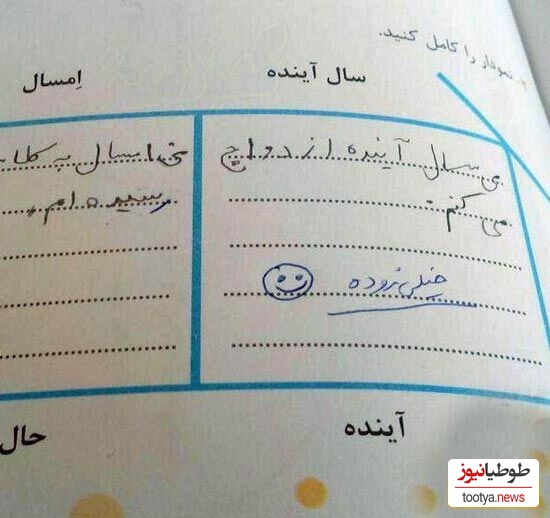 نمودار را کامل کنید.
سال آینده
اِمسال
سال آینده ازدواج
می کنم.
خیلی زوده
امسال به کلا
رسیده ام.
آینده
حال
طوطیانیوز
tootya.news